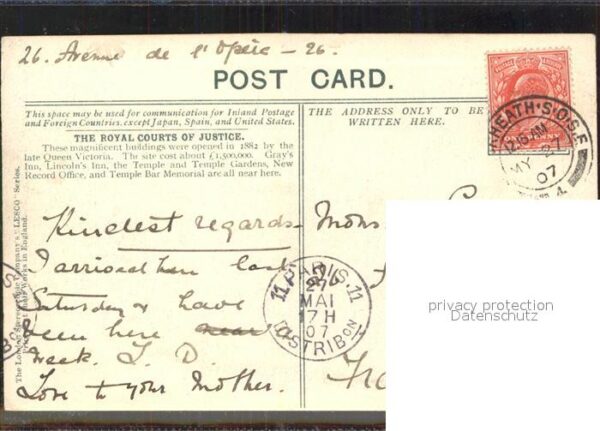 26. Avenue de l'Opéra - 26.
POST CARD.
This space may be used for communication for Inland Postage
and Foreign Countries, except Japan, Spain, and United States.
THE ADDRESS ONLY TO BE
WRITTEN HERE.
THE ROYAL COURTS OF JUSTICE.
These magnificent buildings were opened in 1882 by the
late Queen Victoria. The site cost about £1,500,000. Gray's
Inn, Lincoln's Inn, the Temple and Temple Gardens, New
Record Office, and Temple Bar Memorial are all near here.
Kindest regards.
I arrived here last
Saturday & have
been here
week. T. D.
Love to your Mother.
Mons
HEATH·S.O.S.E
12.15 AM
MY 27
07
PARIS.11
27
MAI
17H
07
DISTRIBON
The London Stereoscopic Company's "LESCO" Series.
Works in England.
privacy protection
Datenschutz